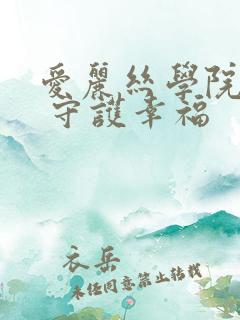 愛麗絲學院
守護幸福
衣岳
未經同意禁止轉載